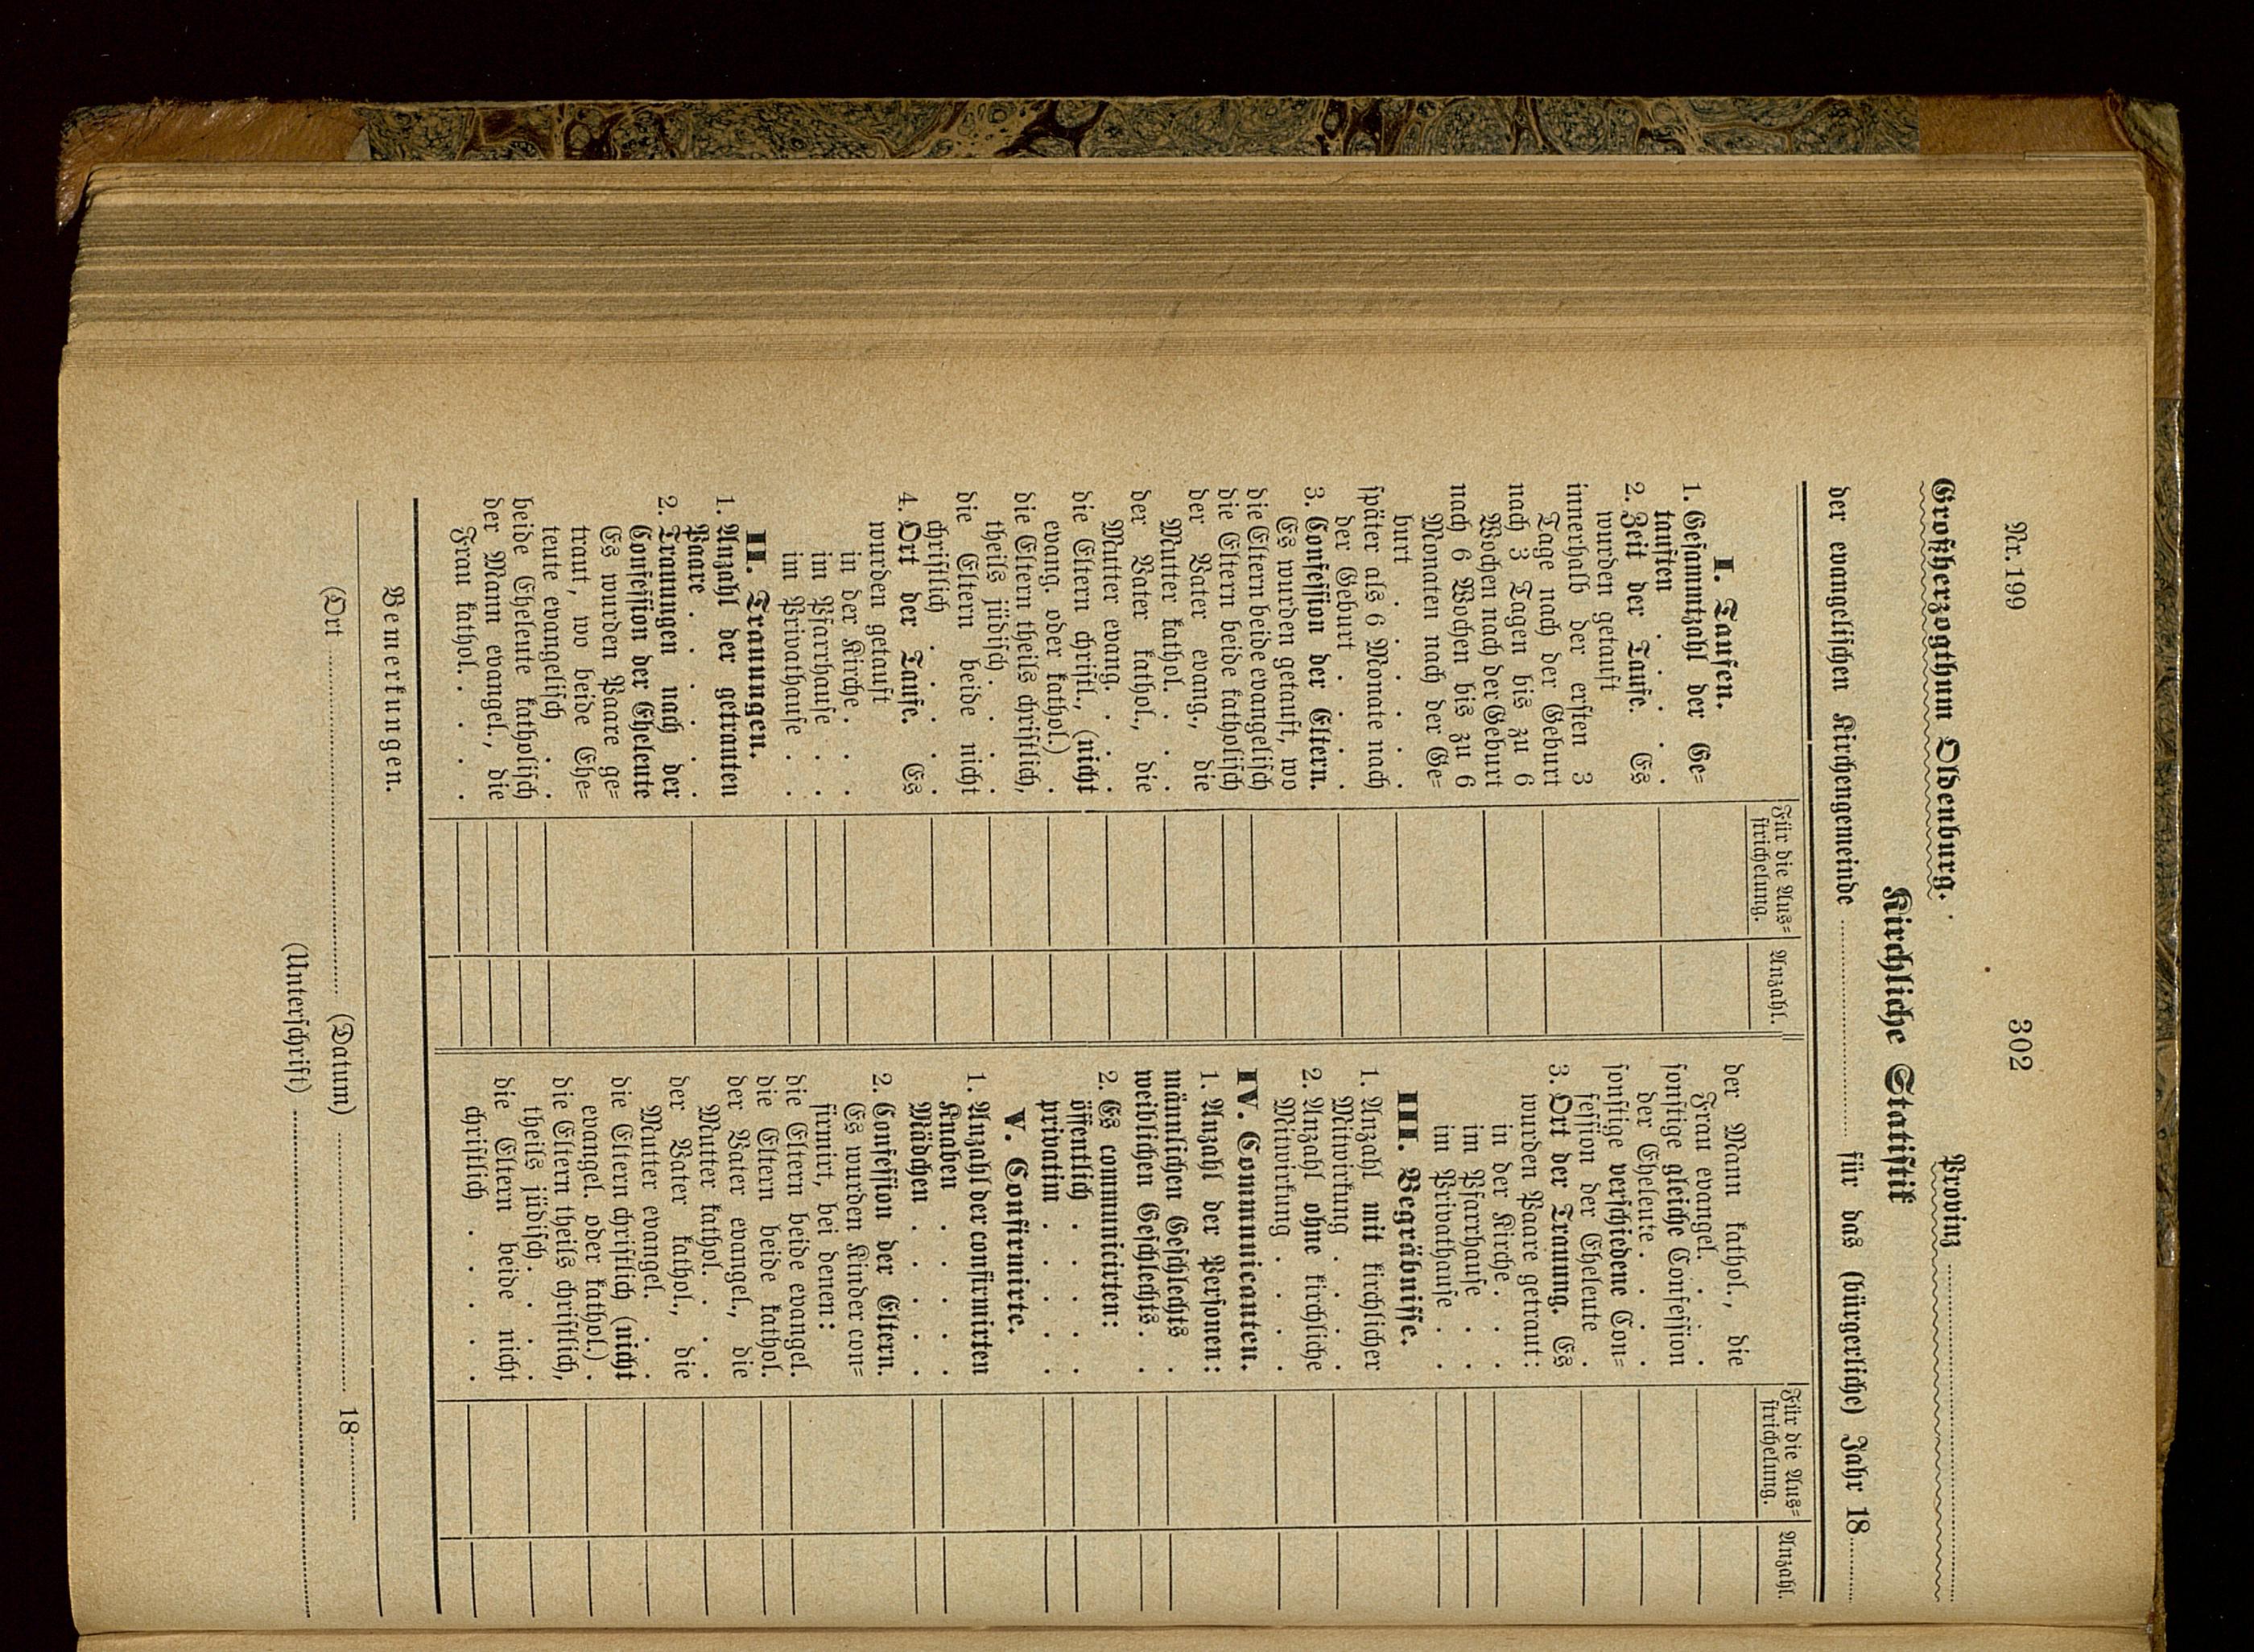 Nr. 199
302
Großherzogthum Oldenburg.
Provinz
Kirchliche Statistik
der evangelischen Kirchengemeinde für das (bürgerliche) Jahr 18
Für die Aus=
strichelung.
Anzahl.
I. Taufen.
1. Gesammtzahl der Ge=
tauften . . .
2. Zeit der Taufe. Es
wurden getauft
innerhalb der ersten 3
Tage nach der Geburt
nach 3 Tagen bis zu 6
Wochen nach der Geburt
nach 6 Wochen bis zu 6
Monaten nach der Ge=
burt . . . .
später als 6 Monate nach
der Geburt . . .
3. Confession der Eltern.
Es wurden getauft, wo
die Eltern beide evangelisch
die Eltern beide katholisch
der Vater evang., die
Mutter kathol. . .
der Vater kathol., die
Mutter evang. . .
die Eltern christl., (nicht
evang. oder kathol.) .
die Eltern theils christlich,
theils jüdisch . . .
die Eltern beide nicht
christlich . . . .
4. Ort der Taufe. Es
wurden getauft
in der Kirche . . .
im Pfarrhause . .
im Privathause . .
II. Trauungen.
1. Anzahl der getrauten
Paare . . . . .
2. Trauungen nach der
Confession der Eheleute
Es wurden Paare ge=
traut, wo beide Ehe=
leute evangelisch . .
beide Eheleute katholisch
der Mann evangel., die
Frau kathol. . . . .
Für die Aus=
strichelung.
Anzahl.
der Mann kathol., die
Frau evangel. . . .
sonstige gleiche Confession
der Eheleute . . .
sonstige verschiedene Con=
fession der Eheleute .
3. Ort der Trauung. Es
wurden Paare getraut:
in der Kirche . . .
im Pfarrhause . .
im Privathause . .
III. Begräbnisse.
1. Anzahl mit kirchlicher
Mitwirkung . . .
2. Anzahl ohne kirchliche
Mitwirkung . . .
IV. Communicanten.
1. Anzahl der Personen:
männlichen Geschlechts .
weiblichen Geschlechts . .
2. Es communicirten:
öffentlich . . . .
privatim . . . .
V. Confirmirte.
1. Anzahl der confirmirten
Knaben . . . .
Mädchen . . . .
2. Confession der Eltern.
Es wurden Kinder con=
firmirt, bei denen:
die Eltern beide evangel.
die Eltern beide kathol.
der Vater evangel., die
Mutter kathol. . .
der Vater kathol., die
Mutter evangel. . .
die Eltern christlich (nicht
evangel. oder kathol.) .
die Eltern theils christlich,
theils jüdisch . . .
die Eltern beide nicht
christlich . . . . .
Bemerkungen.
(Ort (Datum) 18
(Unterschrift)